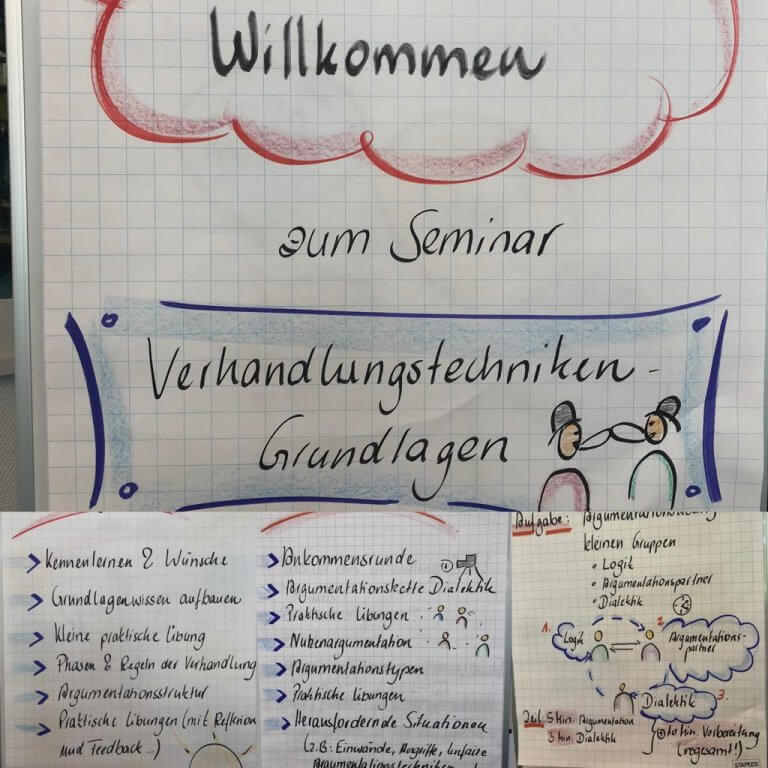 Willkommen
zum Seminar
Verhandlungstechniken -
Grundlagen
Kennenlernen & Wünsche
Grundlagenwissen aufbauen
Kleine praktische Übung
Phasen & Regeln der Verhandlung
Argumentationsstruktur
Praktische Übungen (mit Reflexion
und Feedback...)
Ankommensrunde
Argumentationskette Dialektik
Praktische Übungen
Nutzenargumentation
Argumentationstypen
Praktische Übungen
Herausfordernde Situationen
(z.B.: Einwände, Angriffe, unfaire
Argumentationstechniken
Aufgabe:
kleinen Gruppen
• Logik
• Argumentationspartner
• Dialektik
1.
Logik
2.
Argumentations-
partner
Dialektik
3.
Zeit: 5 min. Argumentation
3 min. Dialektik
10 min. Vorbereitung
(insgesamt!)
STAPLES